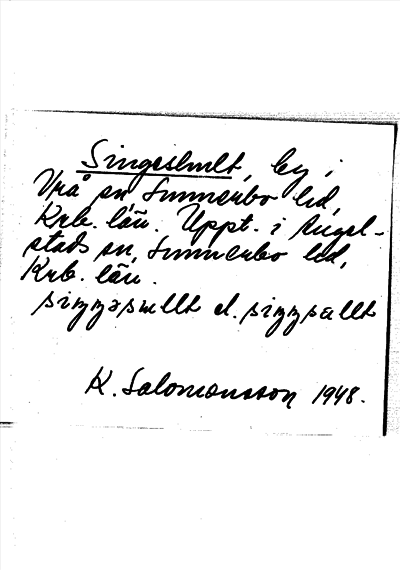 Singeshult, by i
Vrå sn, Sunnerbo hd,
Krb. län. Uppt. i Angel-
stads sn, Sunnerbo hd,
Krb. län.
siŋŋəsullt el. siŋŋsullt
K. Salomonsson 1948.